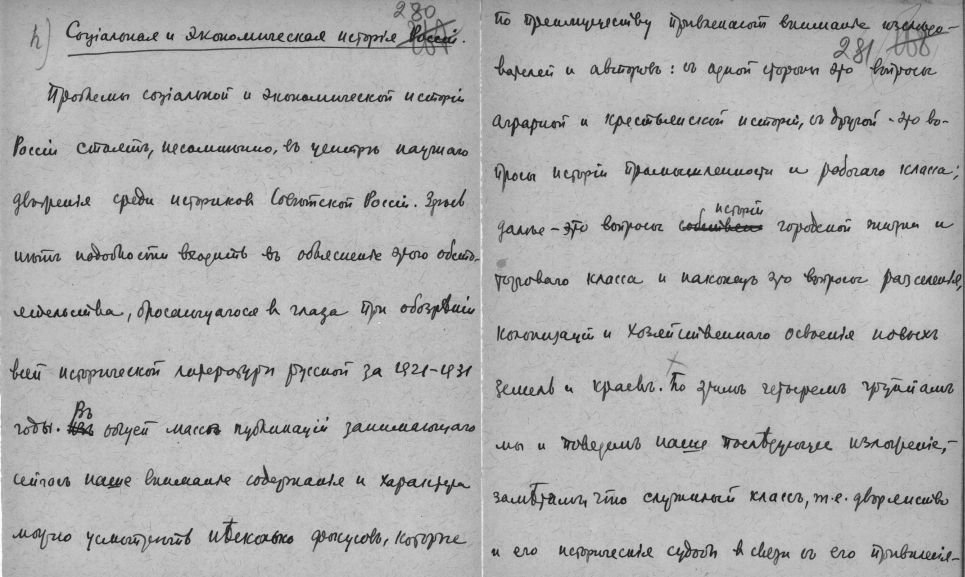 280
h) Соціальная и экономическая исторія Россіи.
Проблемы соціальной и экономической исторіи
Россіи стоятъ, несомнѣнно, въ центрѣ научнаго
движенія среди историковъ Совѣтской Россіи. Здѣсь
нѣтъ надобности входить въ объясненіе этого обсто-
ятельства, бросающагося въ глаза при обозрѣніи
всей исторической литературы русской за 1921-1931
годы. Въ общей массѣ публикацій занимающаго
сейчасъ наше вниманіе содержанія и характера
можно усмотрѣть нѣсколько фокусовъ, которые
по преимуществу привлекаютъ вниманіе изслѣдо-
281
вателей и авторовъ: съ одной стороны это вопросы
аграрной и крестьянской исторіи, съ другой - это во-
просы исторіи промышленности и рабочаго класса;
далѣе - это вопросы исторіи городской жизни и
торговаго класса и наконецъ это вопросы разселенія,
колонизаціи и хозяйственнаго освоенія новыхъ
земель и краевъ. По этимъ четыремъ группамъ
мы и поведемъ наше послѣдующее изложеніе,
замѣтимъ, что служилый классъ, т.е. дворянство
и его историческія судьбы въ связи съ его привилегія-